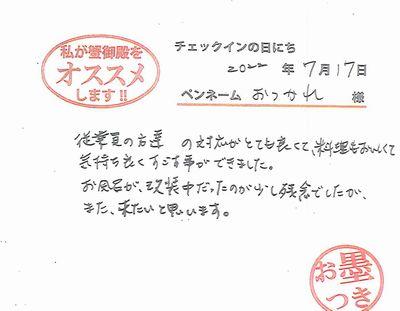 私が蟹御殿を
オススメ
します!!
チェックインの日にち
2022 年 7月 17日
ペンネーム おつかれ 様
従業員の方達 の対応がとても良くて、料理もおいしくて
気持ち良くすごす事ができました。
お風呂が、改装中だったのが少し残念でしたが、
また、来たいと思います。
お墨
つき